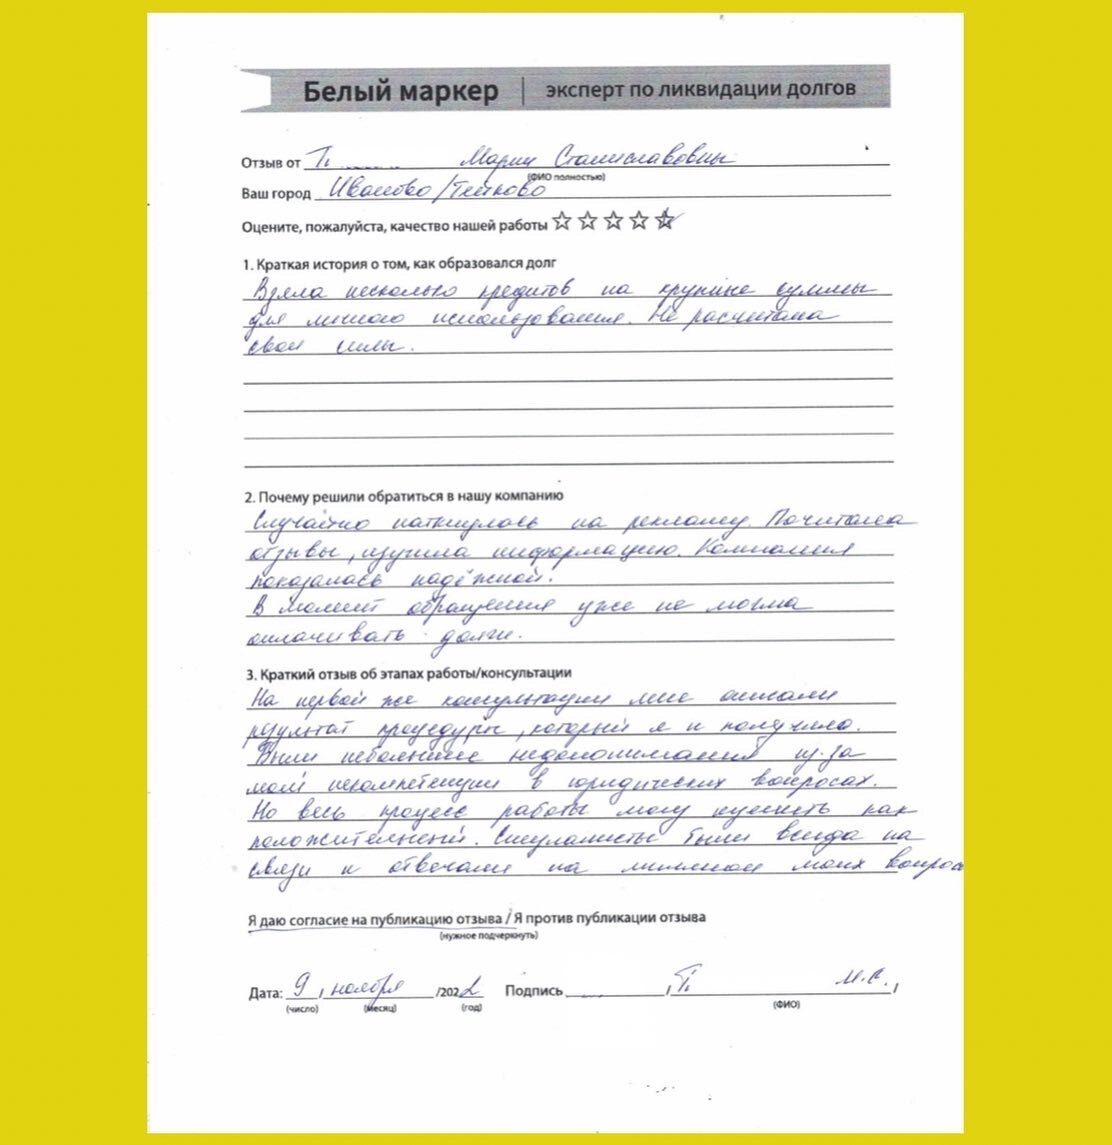 Белый маркер | эксперт по ликвидации долгов
Отзыв от Т. Марии Станиславовны
(ФИО полностью)
Ваш город Иваново/Тейково
Оцените, пожалуйста, качество нашей работы ☆☆☆☆☆
1. Краткая история о том, как образовался долг
Взяла несколько кредитов на крупные суммы
для личного использования. Не расчитала
свои силы.
2. Почему решили обратиться в нашу компанию
Случайно наткнулась на рекламу. Почитала
отзывы, изучила информацию. Компания
показалась надёжной.
В момент обращения уже не могла
оплачивать долги.
3. Краткий отзыв об этапах работы/консультации
На первой же консультации мне описали
результат процедуры, который я и получила.
Были небольшие недопонимания из-за
моей некомпетенции в юридических вопросах.
Но весь процесс работы могу оценить как
положительный. Специалисты были всегда на
связи и отвечали на миллион моих вопрос
Я даю согласие на публикацию отзыва / Я против публикации отзыва
(нужное подчеркнуть)
Дата: 9, ноября /2022 Подпись , Т. М.С.,
(число) (месяц) (год) (ФИО)